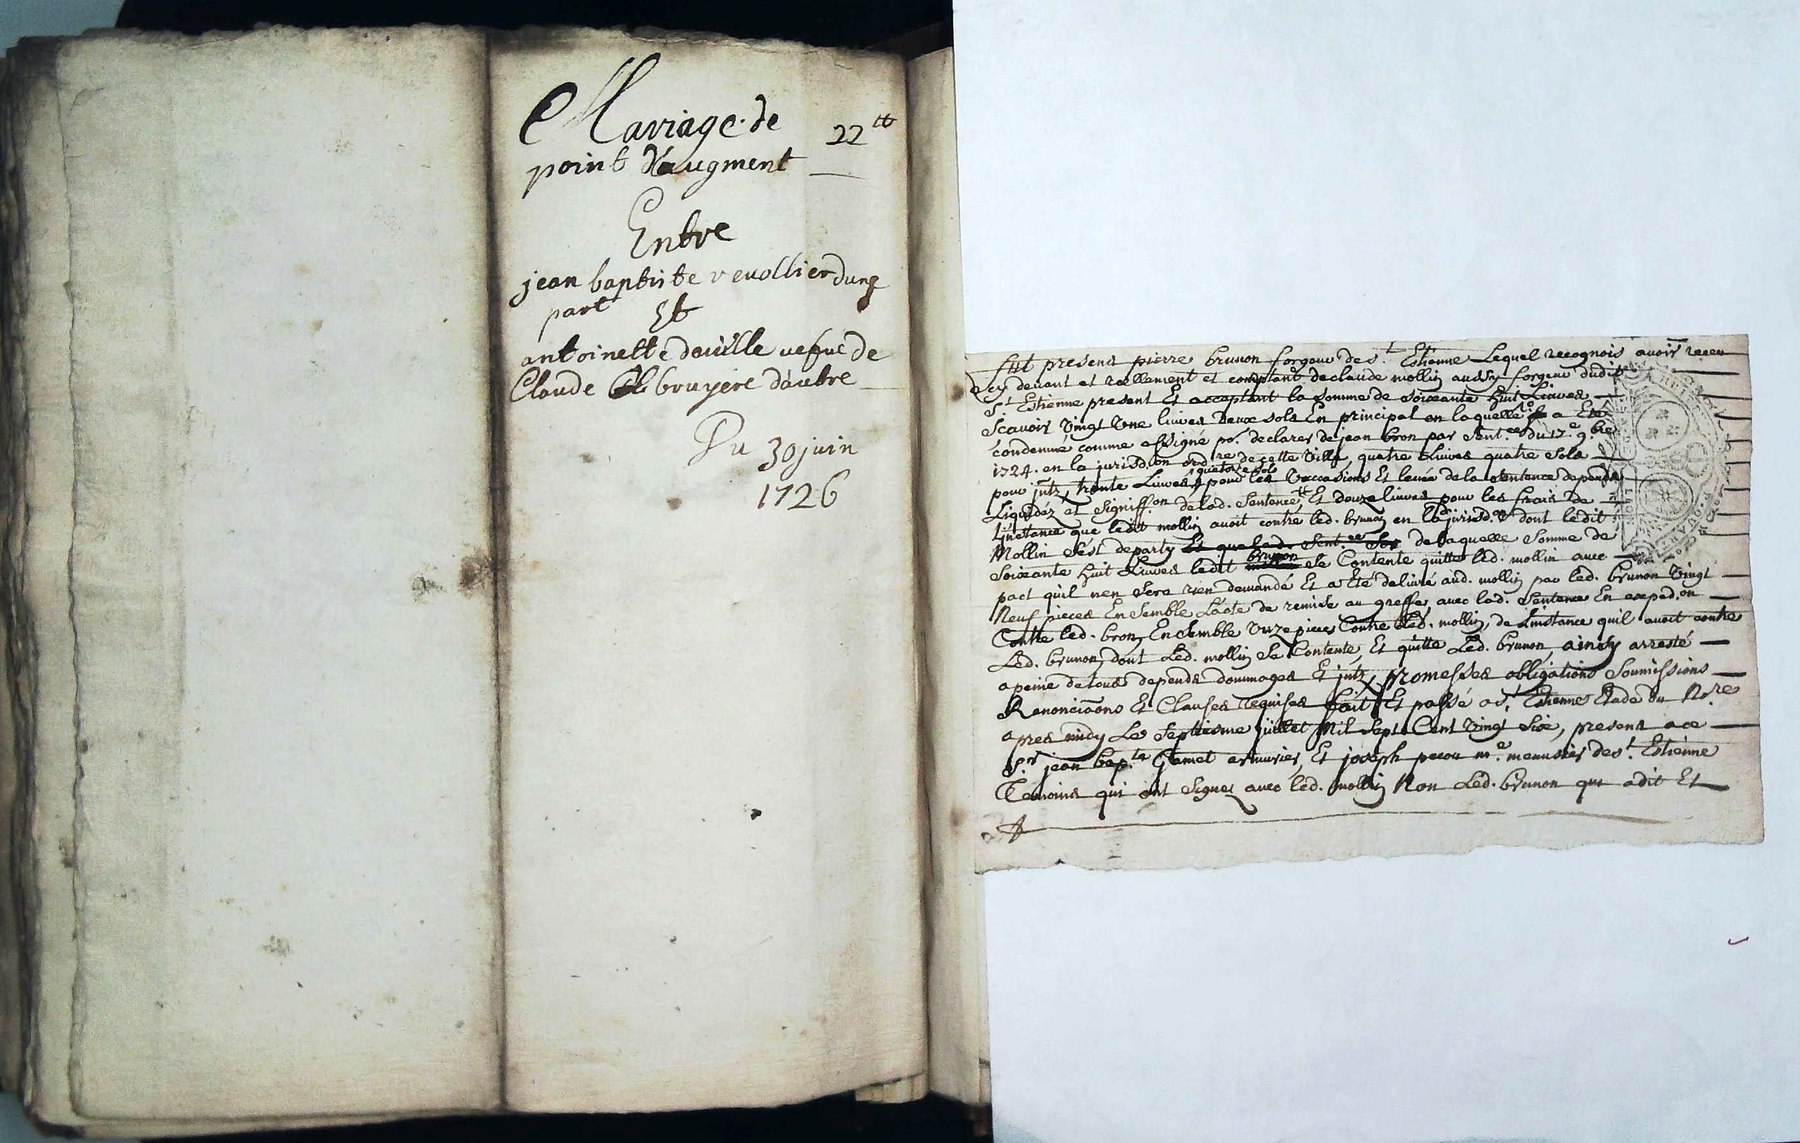 Mariage de
point d'augment
22 tt
Entre
jean baptiste revollier dune
part Et
antoinette deville vefve de
Claude bruyere d'autre
Du 30 juin
1726
fut present pierre brunon forgeur de st Etienne Lequel recognois avoir receu
cy devant et reellement et comptant de claude mollin aussy forgeur dudit
St Estienne present Et acceptant la somme de soixante huit Livres
scavoir vingt une livres deux sols En principal en laquelle il a Eté
condemné comme assigné pr. declarer de jean bron par sent.ce du 17e 9bre
1724. en la jurisd.on ord.re de cette ville, quatre Livres quatre sols
pour jntz, trente Livres quatorze sols pour les vaccasions Et levée de la sentence depends
Liquidez et signiff.on de lad. sentence Et douze livres pour les frais de
Linstance que ledit mollin avoit contre led. brunon en lad. jurisd.on dont ledit
Mollin sest departy Et que lad. sent.ce de laquelle somme de
soixante huit Livres ledit brunon se Contente quitte led. mollin avec
pact quil nen sera rien demandé Et a Eté delivré aud. mollin par led. brunon vingt
Neuf pieces Ensemble Lacte de remise au greffe, avec lad. sentence En exped.on
Contre led. bron, Ensemble unze pieces Contre led. mollin, de Linstance quil avoit contre
Led. brunon, dont Led. mollin se Contente, Et quitte Led. brunon, ainsy arresté
a peine de tous depends dommages Et jntz, promesses obligations soumissions
Renonciaons Et Clauses requises fait Et passé a st. Etienne Etude du No.re
apres midy Le septiesme juillet Mil sept Cent vingt six, presens a ce
sr. jean bap.te Gamet armurier, Et joseph perou me. menusier de st. Estienne
Temoins qui ont signez avec led. mollin Non Led. brunon qui a dit Et